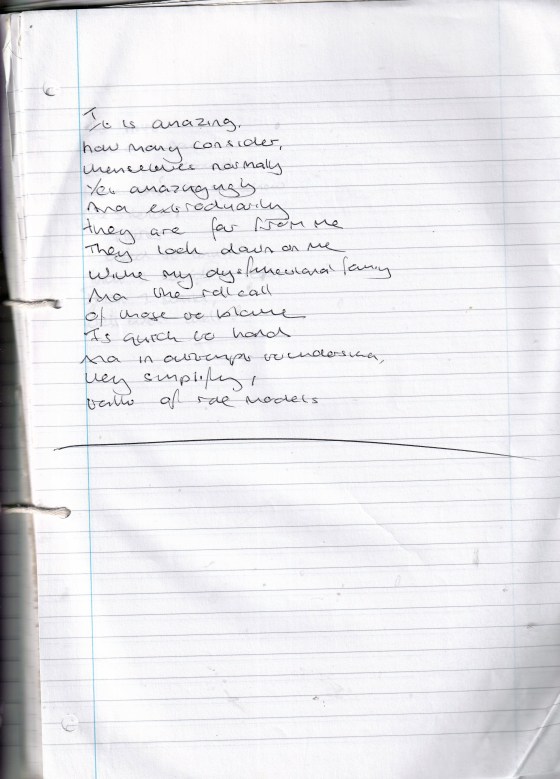 It is amazing,
how many consider,
themselves normaly
Yet amazingugly
And extroduarily
they are far from me
They look down on me
With my dysfunctional family
And the roll call
of those to blame
Is quick to hand
And in attempt to understand,
they simplify,
talk of role models